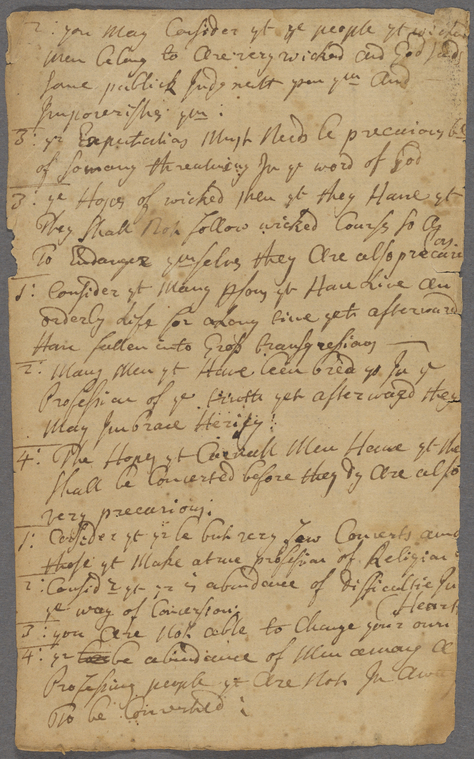 2: you May Consider yt ye people yt wicked
Men belong to Are very wicked and God sends
some publick Judgmett upon ym And
Impoverishes ym:
3: yr Expectations Must Needs be precarious bec
of so many threatnings In ye word of God
3: ye Hopes of wicked Men yt they Have yt
They shall Not follow wicked Courses so As
To Endanger ymselves they Are also precarious
1: Consider yt Many psons yt Have live An
orderly life for a long time yet afterward
Have fallen into Gross transgressions
2: Many Men yt Have been bred up In ye
Profession of ye truth yet afterward they
May Imbrace Herisy:
4: The Hopes yt Carnall Men Have yt they
shall be Converted before they dy Are also
very precarious:
1: Consider yt yr be but very few Converts among
those yt Make a true profession of Religion
2: Consider yt yr is abundance of difficultie In
ye way of Conversion;
3: you Are Not able to Change your own Heart
4: yr be abundance of Men among
Professing people yt Are Not In A way
To be Converted: